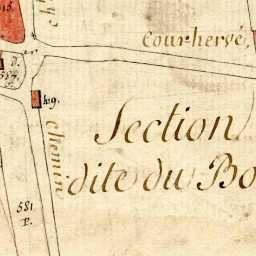 Courhervé
D.
419.
chemin
Section
dite du Bo
581
P.